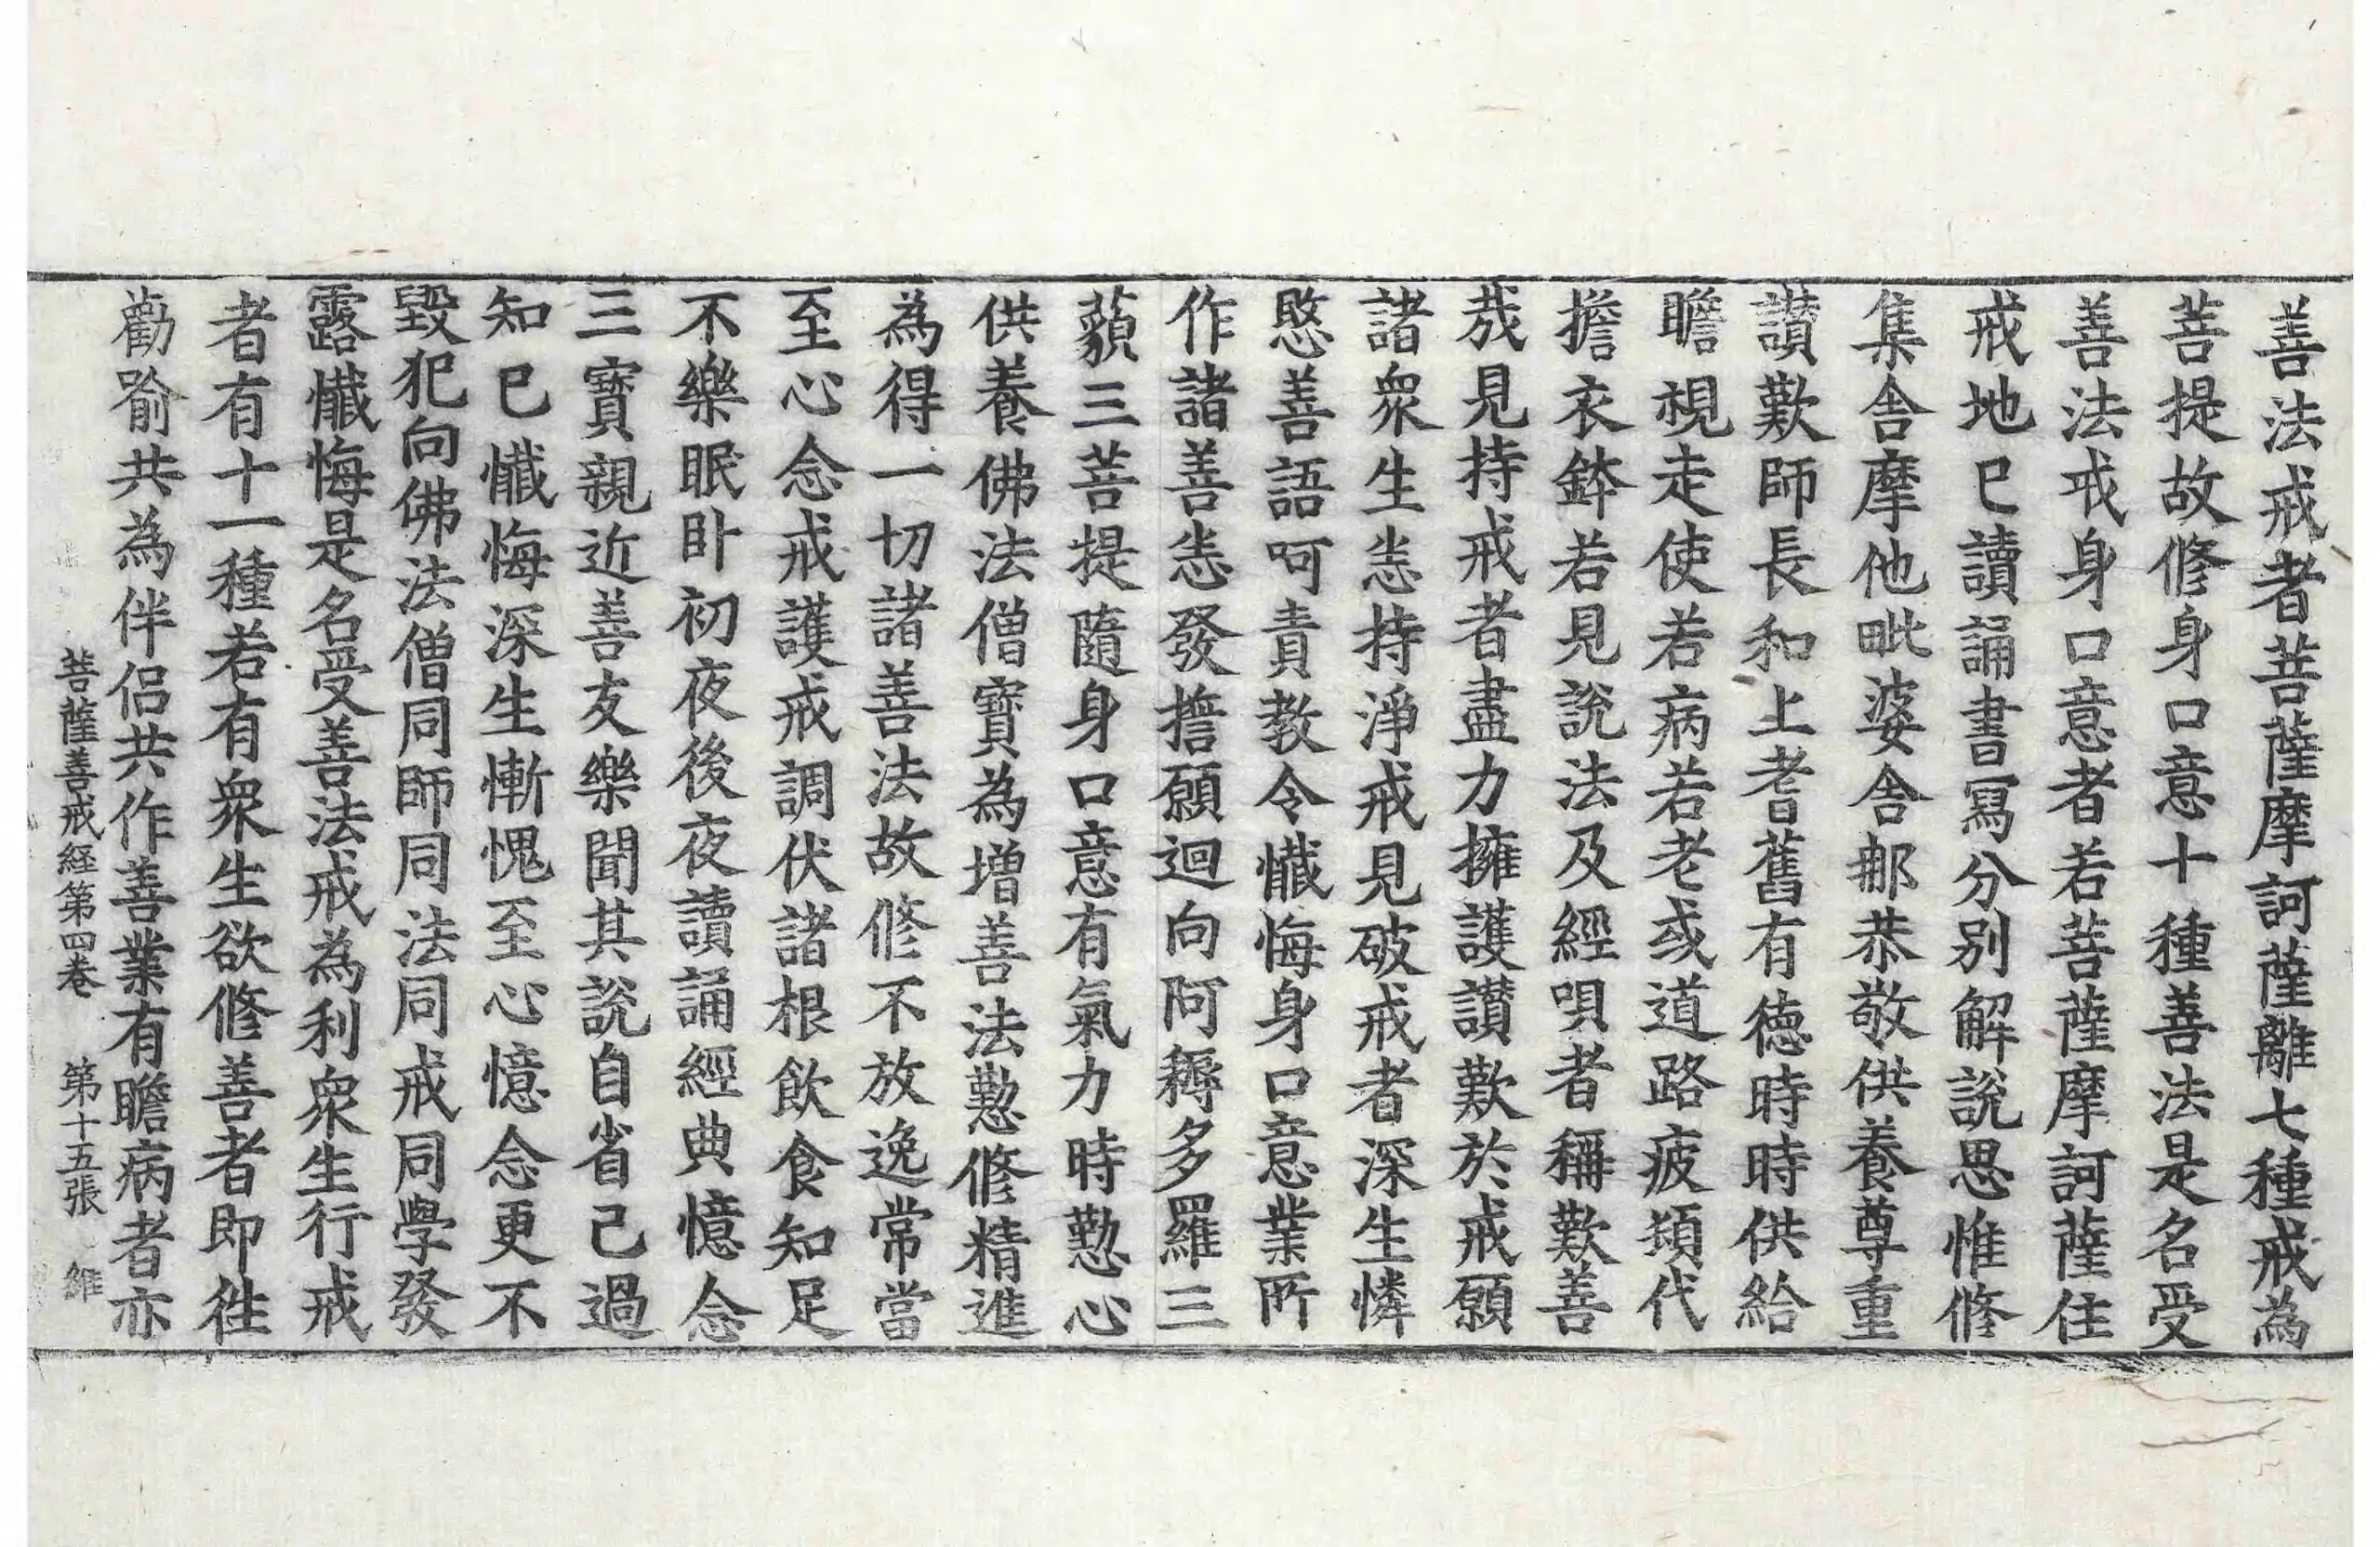 善法戒者菩薩摩訶薩離七種戒為
菩提故修身口意十種善法是名受
善法戒身口意者若菩薩摩訶薩住
戒地已讀誦書寫分別解說思惟修
集舍摩他毗婆舍那恭敬供養尊重
讃歎師長和上耆舊有德時時供給
瞻視走使若病若老或道路疲頓代
擔衣鉢若見說法及經唄者稱歎善
哉見持戒者盡力擁護讃歎於戒願
諸衆生恙持淨戒見破戒者深生憐
愍善語呵責教令懺悔身口意業所
作諸善恙發擔願迴向阿耨多羅三
藐三菩提隨身口意有氣力時懃心
供養佛法僧寶為增善法懃修精進
為得一切諸善法故修不放逸常當
至心念戒護戒調伏諸根飲食知足
不樂眠卧初夜後夜讀誦經典憶念
三寶親近善友樂聞其說自省己過
知已懺悔深生慚愧至心憶念更不
毀犯向佛法僧同師同法同戒同學發
露懺悔是名受善法戒為利衆生行戒
者有十一種若有衆生欲修善者即徃
勸喻共為伴侶共作善業有瞻病者亦
菩薩善戒経第四卷　第十五張　維